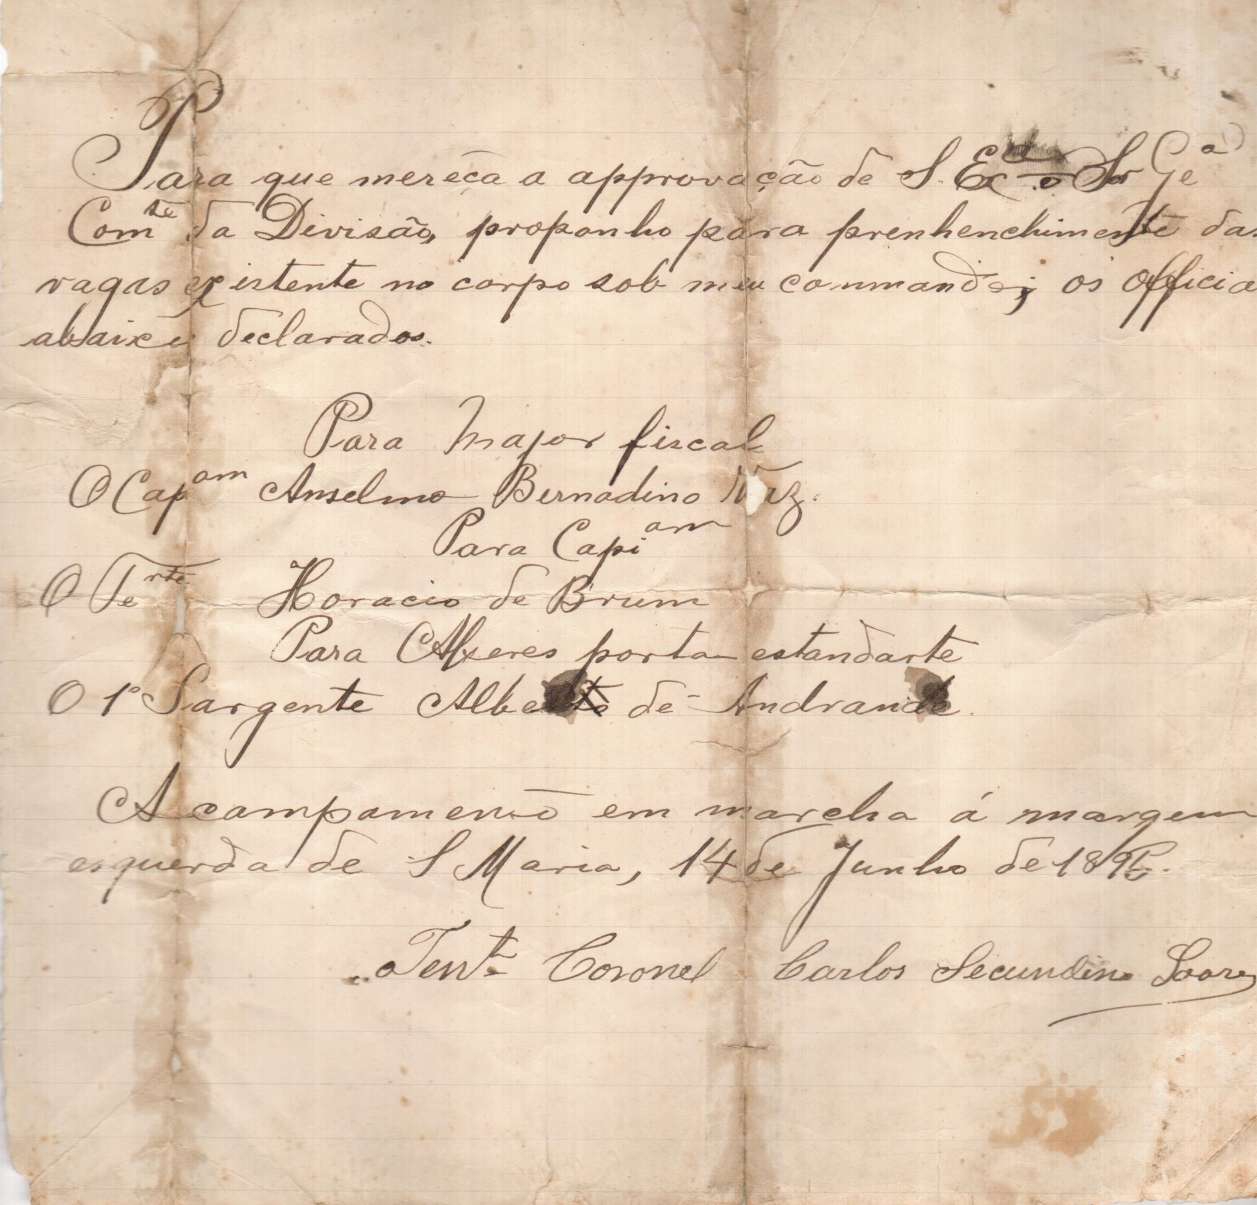 Para que merêça a approvação de S. Ex.ª o Sr Ge.ª
Com.te da Divisão, proponho para prenhenchimente das
vagas existente no corpo sob meu commando; os officia
abaixo declarados.
Para Major fiscal
O Cap.am Anselmo Bernadino Vaz.
Para Capi.am
O Te.nte Horacio de Brum
Para Alferes porta estandarte
O 1º Sargente Alberte de Andrande.
Acampamento em marcha á margem
esquerda de S Maria, 14 de Junho de
Ten.te Coronel Carlos Secundino Soares